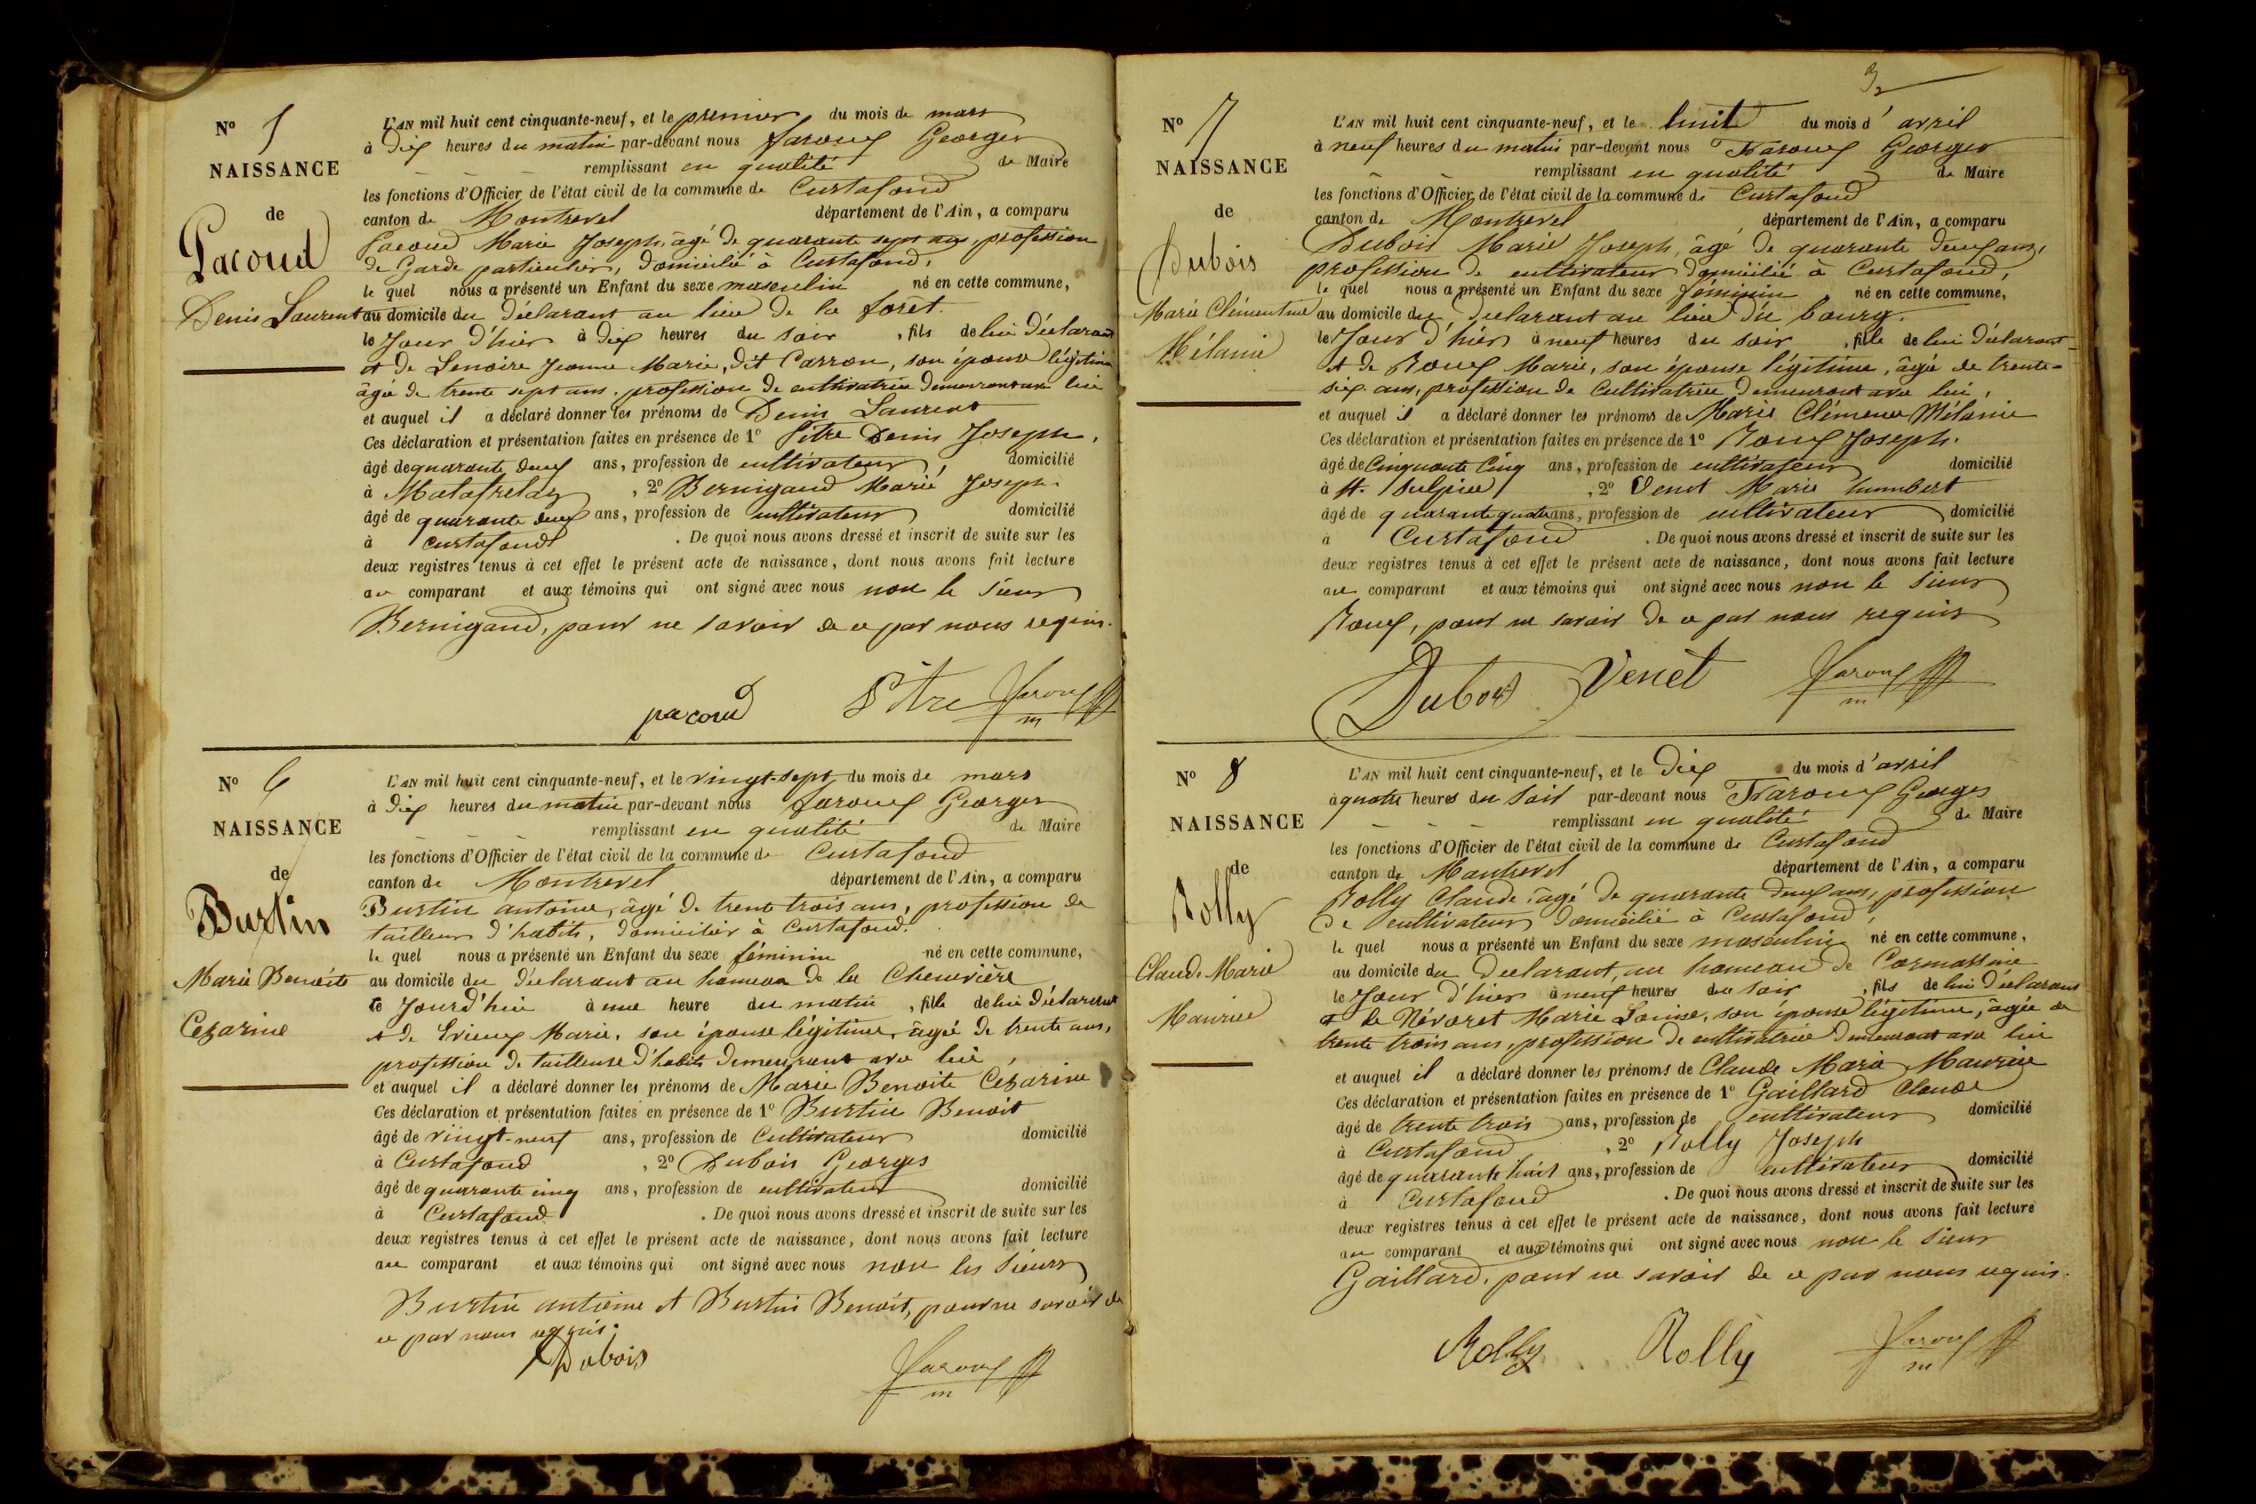 N° 5
NAISSANCE
de
Pacoud
Denis Laurent
L'AN mil huit cent cinquante-neuf, et le premier du mois de mars
à dix heures du matin par-devant nous Faroux Georges
remplissant en qualité de Maire
les fonctions d'Officier de l'état civil de la commune de Curtafond
canton de Montrevel département de l'Ain, a comparu
Pacoud Marie Joseph, âgé de quarante sept ans, profession
de Garde particulier, domicilié à Curtafond,
le quel nous a présenté un Enfant du sexe masculin né en cette commune,
au domicile du déclarant au lieu de la forêt.
le Jour d'hier à dix heures du soir, fils de lui déclarant
et de Lenoire Jeanne Marie, dit Carron, son épouse légitime
âgée de trente sept ans, profession de cultivatrice demeurant avec lui
et auquel il a déclaré donner les prénoms de Denis Laurent
Ces déclaration et présentation faites en présence de 1° Pitre Denis Joseph,
âgé de quarante deux ans, profession de cultivateur, domicilié
à Malafretaz, 2° Bernigaud Marie Joseph.
âgé de quarante deux ans, profession de cultivateur domicilié
à Curtafond. De quoi nous avons dressé et inscrit de suite sur les
deux registres tenus à cet effet le présent acte de naissance, dont nous avons fait lecture
au comparant et aux témoins qui ont signé avec nous non le Sieur
Bernigaud, pour ne savoir de ce par nous requis.
pacoud Pitre Faroux
m
N° 6
NAISSANCE
de
Burtin
Marie Benoite
Cezarine
L'AN mil huit cent cinquante-neuf, et le vingt-sept du mois de mars
à dix heures du matin par-devant nous Faroux Georges
remplissant en qualité de Maire
les fonctions d'Officier de l'état civil de la commune de Curtafond
canton de Montrevel département de l'Ain, a comparu
Burtin antoine, âgé de trente trois ans, profession de
tailleur d'habits, domicilier à Curtafond.
le quel nous a présenté un Enfant du sexe féminin né en cette commune,
au domicile du déclarant au hameau de la Chenevière
le Jourd'hui à une heure du matin, fille de lui déclarant
et de Erieux Marie, son épouse légitime, âgée de trente ans,
profession de tailleuse d'habits demeurant avec lui,
et auquel il a déclaré donner les prénoms de Marie Benoite Cezarine
Ces déclaration et présentation faites en présence de 1° Burtin Benoit
âgé de vingt-neuf ans, profession de Cultivateur domicilié
à Curtafond, 2° Dubois Georges
âgé de quarante cinq ans, profession de cultivateur domicilié
à Curtafond. De quoi nous avons dressé et inscrit de suite sur les
deux registres tenus à cet effet le présent acte de naissance, dont nous avons fait lecture
au comparant et aux témoins qui ont signé avec nous non les Sieurs
Burtin antoine et Burtin Benoit, pour ne savoir de
ce par nous requis.
Dubois Faroux
m
N° 7
NAISSANCE
de
Dubois
Marie Clémentine
Mélanie
L'AN mil huit cent cinquante-neuf, et le huit du mois d'avril
à neuf heures du matin par-devant nous Faroux Georges
remplissant en qualité de Maire
les fonctions d'Officier de l'état civil de la commune de Curtafond
canton de Montrevel département de l'Ain, a comparu
Dubois Marie Joseph, âgé de quarante deux ans,
profession de cultivateur domicilié à Curtafond,
le quel nous a présenté un Enfant du sexe féminin né en cette commune,
au domicile du déclarant au lieu du bourg.
le Jour d'hier à neuf heures du soir, fille de lui déclarant
et de Roux Marie, son épouse légitime, âgée de trente-
six ans, profession de Cultivatrice demeurant avec lui,
et auquel il a déclaré donner les prénoms de Marie Clémence Mélanie
Ces déclaration et présentation faites en présence de 1° Roux Joseph.
âgé de Cinquante Cinq ans, profession de cultivateur domicilié
à St. Sulpice, 2° Venet Marie humbert
âgé de quarante quatre ans, profession de cultivateur domicilié
à Curtafond. De quoi nous avons dressé et inscrit de suite sur les
deux registres tenus à cet effet le présent acte de naissance, dont nous avons fait lecture
au comparant et aux témoins qui ont signé avec nous non le Sieur
Roux, pour ne savoir de ce par nous requis
Dubois Venet Faroux
m
N° 8
NAISSANCE
de
Rolly
Claude Marie
Maurice
L'AN mil huit cent cinquante-neuf, et le dix du mois d'avril
à quatre heures du Soir par-devant nous Faroux Georges
remplissant en qualité de Maire
les fonctions d'Officier de l'état civil de la commune de Curtafond
canton de Montrevel département de l'Ain, a comparu
Rolly Claude, âgé de quarante deux ans, profession
de cultivateur domicilié à Curtafond,
le quel nous a présenté un Enfant du sexe masculin né en cette commune,
au domicile du déclarant, au hameau de
le Jour d'hier à neuf heures du soir, fils de lui déclarant
et de Névoret Marie Louise, son épouse légitime, âgée de
trente trois ans, profession de cultivatrice demeurant avec lui
et auquel il a déclaré donner les prénoms de Claude Marie Maurice
Ces déclaration et présentation faites en présence de 1° Gaillard Claude
âgé de trente trois ans, profession de cultivateur domicilié
à Curtafond, 2° Rolly Joseph
âgé de quarante huit ans, profession de cultivateur domicilié
à Curtafond. De quoi nous avons dressé et inscrit de suite sur les
deux registres tenus à cet effet le présent acte de naissance, dont nous avons fait lecture
au comparant et aux témoins qui ont signé avec nous non le Sieur
Gaillard, pour ne savoir de ce par nous requis.
Rolly Rolly Faroux
m